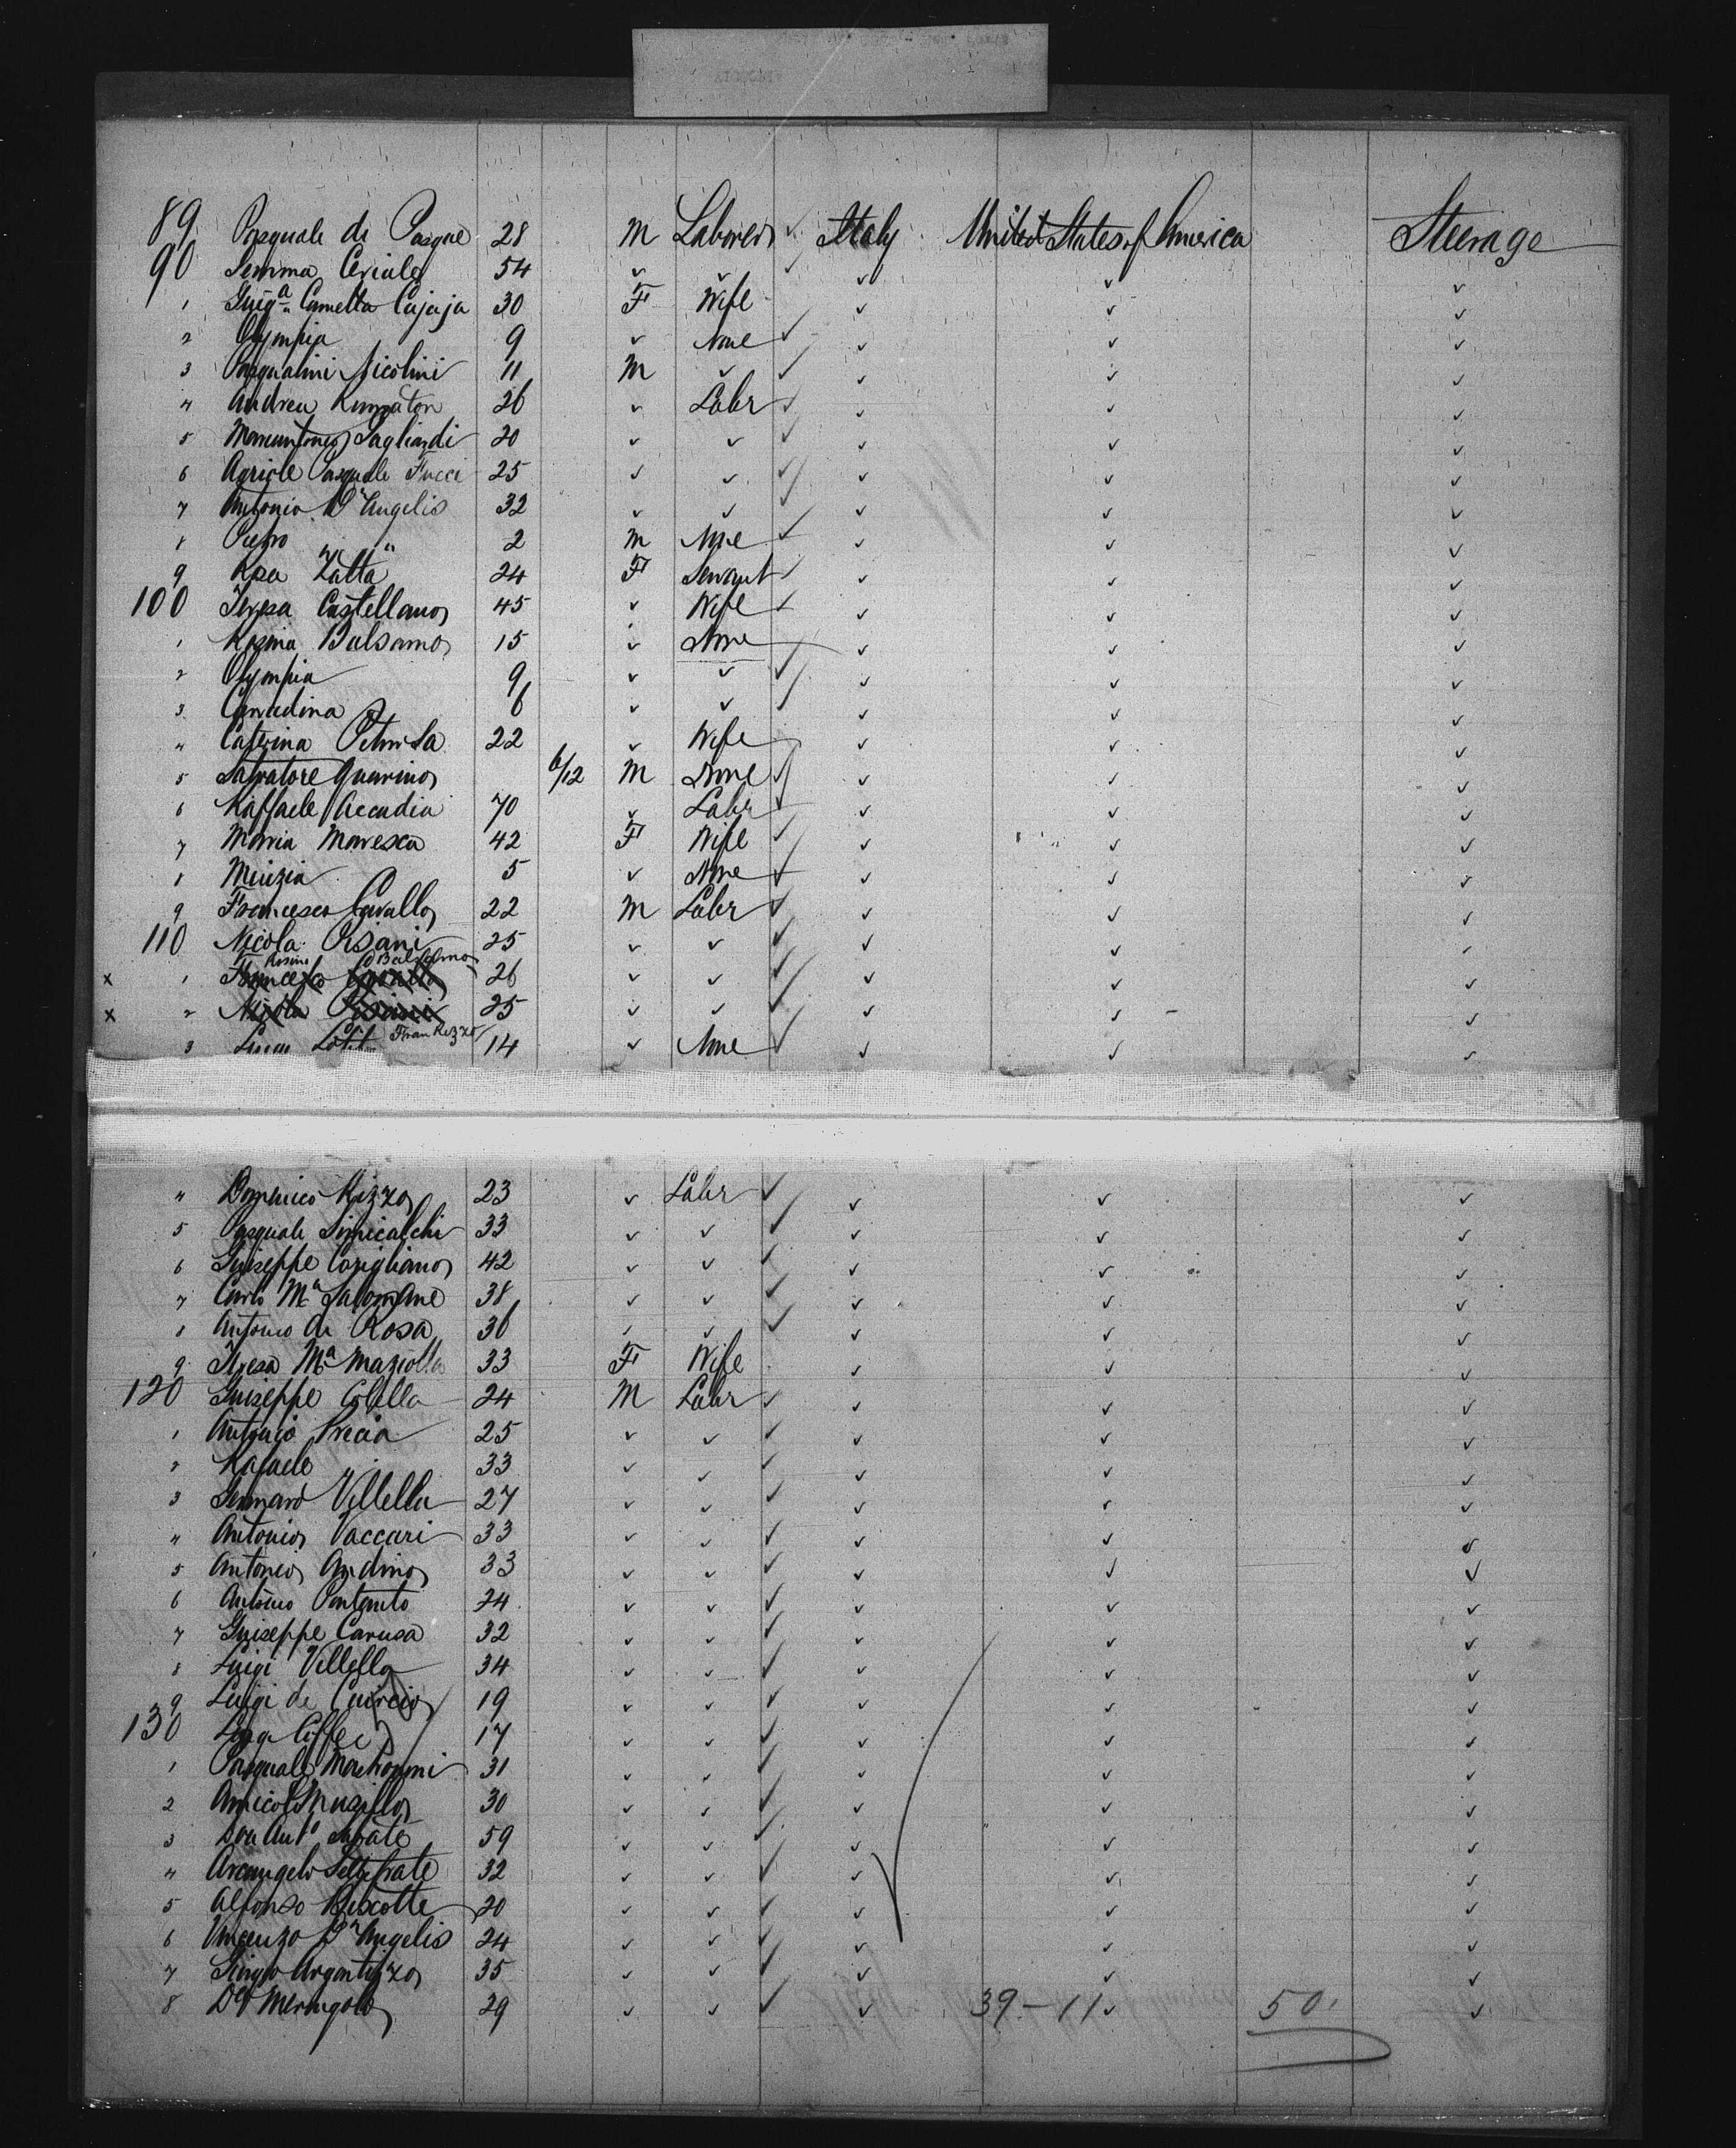 89 Pasquale di Pasque 28 M Laborer ✓ Italy United States of America Steerage
90 Gemma Ceriale 54 ✓ ✓ ✓ ✓ ✓
1 Luigª Camella Cajaja 30 F Wife ✓ ✓ ✓
2 Olympia 9 ✓ None ✓ ✓ ✓ ✓
3 Pasqualini Nicolini 11 M ✓ ✓ ✓ ✓ ✓
4 Andrea 26 ✓ Labr ✓ ✓ ✓ ✓
5 Gagliardi 20 ✓ ✓ ✓ ✓ ✓ ✓
6 Agricle Pasquale Fucci 25 ✓ ✓ ✓ ✓ ✓ ✓
7 Antonio D'Angelis 32 ✓ ✓ ✓ ✓ ✓ ✓
8 Pietro " " 2 M None ✓ ✓ ✓ ✓
9 Rosa Zatta 24 F Servant ✓ ✓ ✓ ✓
100 Teresa Castellano 45 ✓ Wife ✓ ✓ ✓ ✓
1 Rosina Balsamo 15 ✓ None ✓ ✓ ✓
2 Olympia 9 ✓ ✓ ✓ ✓ ✓ ✓
3 Corradina 6 ✓ ✓ ✓ ✓ ✓ ✓
4 Caterina 22 ✓ Wife ✓ ✓ ✓
5 Salvatore Guarino 6/12 M None ✓ ✓ ✓ ✓
6 Raffaele Accadia 70 ✓ Labr ✓ ✓ ✓ ✓
7 Maria Maresca 42 F Wife ✓ ✓ ✓ ✓
8 Minzia 5 ✓ None ✓ ✓ ✓ ✓
9 Francesco Cavallo 22 M Labr ✓ ✓ ✓ ✓
110 Nicola Pisani 25 ✓ ✓ ✓ ✓ ✓ ✓
Rosina Balsamo
x 1 Francesco Cavallo 26 ✓ ✓ ✓ ✓ ✓ ✓
x 2 Nicola Pisani 25 ✓ ✓ ✓ ✓ ✓ ✓
3 Fran Rizzo 14 ✓ None ✓ ✓ ✓ ✓
4 Domenico Rizzo 23 ✓ Labr ✓ ✓ ✓ ✓
5 Pasquale Sinicalchi 33 ✓ ✓ ✓ ✓ ✓ ✓
6 Guiseppe Corigliano 42 ✓ ✓ ✓ ✓ ✓ ✓
7 Carlo Mª Salomone 38 ✓ ✓ ✓ ✓ ✓ ✓
8 Antonio di Rosa 36 ✓ ✓ ✓ ✓ ✓ ✓
9 Teresa Mª Maziolla 33 F Wife ✓ ✓ ✓
120 Guiseppe Colella 24 M Labr ✓ ✓ ✓ ✓
1 Antonio Precia 25 ✓ ✓ ✓ ✓ ✓ ✓
2 Rafaele " 33 ✓ ✓ ✓ ✓ ✓ ✓
3 Gennaro Villella 27 ✓ ✓ ✓ ✓ ✓ ✓
4 Antonio Vaccari 33 ✓ ✓ ✓ ✓ ✓ ✓
5 Antonio Andino 33 ✓ ✓ ✓ ✓ ✓ ✓
6 Antonio 24 ✓ ✓ ✓ ✓ ✓ ✓
7 Guiseppe Carusa 32 ✓ ✓ ✓ ✓ ✓ ✓
8 Luigi Villella 34 ✓ ✓ ✓ ✓ ✓ ✓
9 Luigi de Cuircio 19 ✓ ✓ ✓ ✓ ✓ ✓
130 17 ✓ ✓ ✓ ✓ ✓ ✓
1 Pasquale 31 ✓ ✓ ✓ ✓ ✓ ✓
2 Musillo 30 ✓ ✓ ✓ ✓ ✓ ✓
3 Antº Abate 59 ✓ ✓ ✓ ✓ ✓ ✓
4 Arcangelo 32 ✓ ✓ ✓ ✓ ✓ ✓
5 Alfonso Biscotte 20 ✓ ✓ ✓ ✓ ✓ ✓
6 Vincenzo D'Angelis 24 ✓ ✓ ✓ ✓ ✓ ✓
7 35 ✓ ✓ ✓ ✓ ✓ ✓
8 Meringolo 29 ✓ ✓ ✓ ✓ 39-11 ✓ 50 ✓